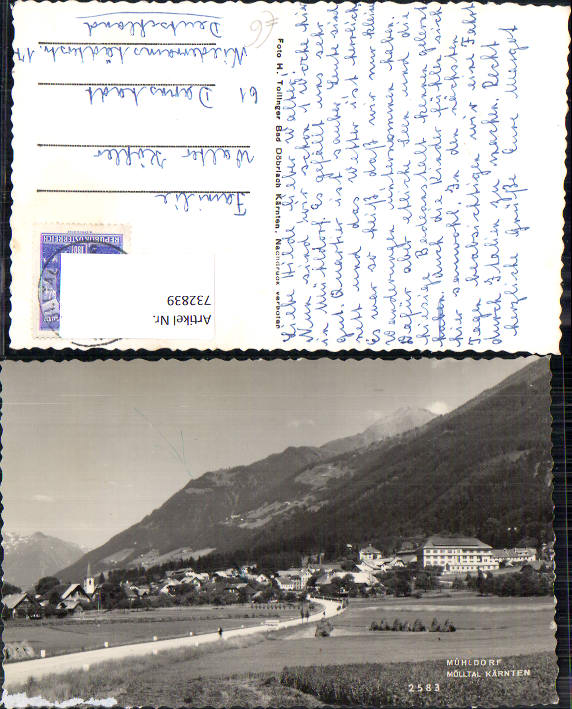 Liebe Hilde, lieber Walter!
Nun sind wir schon 1 Woche hier
in Mühldorf. Es gefällt uns sehr
gut. Quartier ist sauber, Leute sehr
nett und das Wetter ist herrlich.
Es war so heiß daß wir nur kleine
Wanderungen unternommen haben.
Dafür aber etliche Seen und die
hiesige Badeanstalt haben gelockt
baden. Auch die Kinder fühlen sich
hier sauwohl. In den nächsten
Tagen beabsichtigen wir eine Fahrt
durch Italien zu machen. Recht
herzliche Grüße Eure Margot
Foto H. Tollinger Bad Döbriach Kärnten. Nachdruck verboten
Familie
Walter Rößler
61 Darmstadt
Niederramstädterstr. 17
Deutschland
REPUBLIK ÖSTERREICH
Artikel Nr.
732839
MÜHLDORF
MÖLLTAL KÄRNTEN
2583